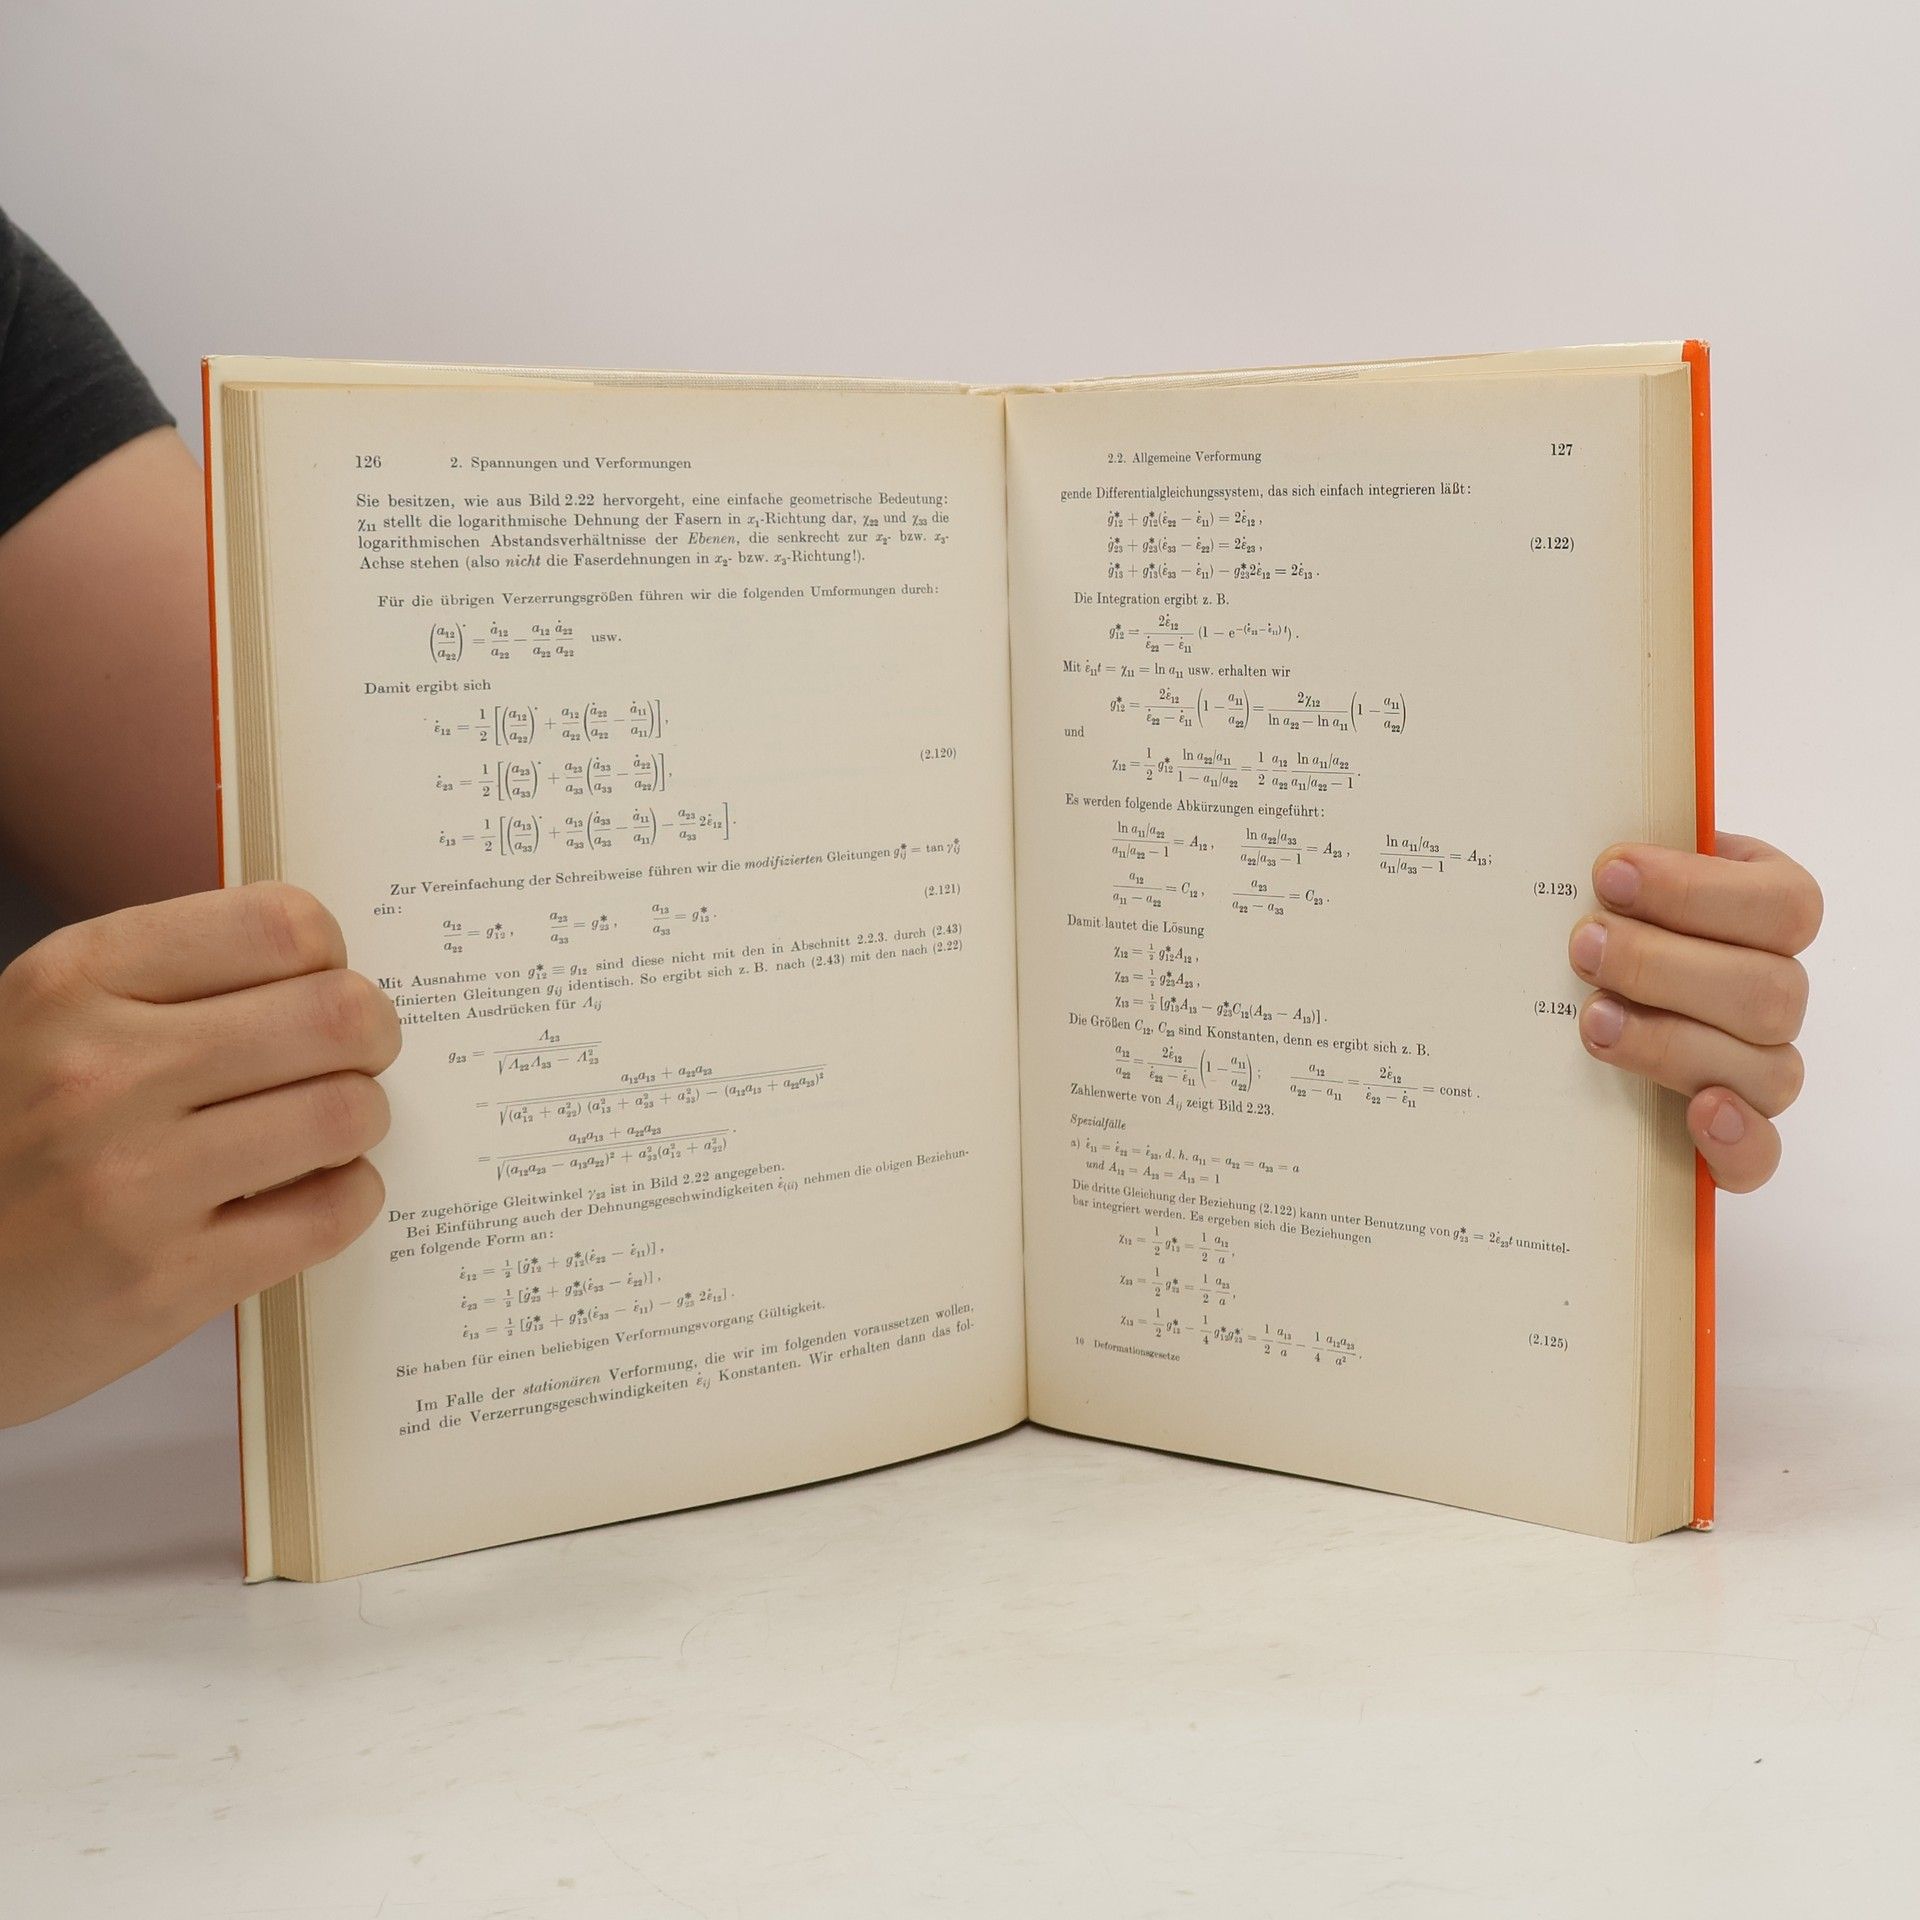 126 2. Spannungen und Verformungen
Sie besitzen, wie aus Bild 2.22 hervorgeht, eine einfache geometrische Bedeutung:
χ₁₁ stellt die logarithmische Dehnung der Fasern in x₁-Richtung dar, χ₂₂ und χ₃₃ die
logarithmischen Abstandsverhältnisse der Ebenen, die senkrecht zur x₂- bzw. x₃-
Achse stehen (also nicht die Faserdehnungen in x₂- bzw. x₃-Richtung!).
Für die übrigen Verzerrungsgrößen führen wir die folgenden Umformungen durch:
(a₁₂/a₂₂)˙ = ȧ₁₂/a₂₂ − a₁₂/a₂₂ ȧ₂₂/a₂₂ usw.
Damit ergibt sich
ε̇₁₂ = 1/2 [(a₁₂/a₂₂)˙ + a₁₂/a₂₂ (ȧ₂₂/a₂₂ − ȧ₁₁/a₁₁)],
ε̇₂₃ = 1/2 [(a₂₃/a₃₃)˙ + a₂₃/a₃₃ (ȧ₃₃/a₃₃ − ȧ₂₂/a₂₂)], (2.120)
ε̇₁₃ = 1/2 [(a₁₃/a₃₃)˙ + a₁₃/a₃₃ (ȧ₃₃/a₃₃ − ȧ₁₁/a₁₁) − a₂₃/a₃₃ 2ε̇₁₂].
Zur Vereinfachung der Schreibweise führen wir die modifizierten Gleitungen g*ᵢⱼ = tan γ*ᵢⱼ
ein:
a₁₂/a₂₂ = g*₁₂, a₂₃/a₃₃ = g*₂₃, a₁₃/a₃₃ = g*₁₃. (2.121)
Mit Ausnahme von g*₁₂ ≡ g₁₂ sind diese nicht mit den in Abschnitt 2.2.3. durch (2.43)
finierten Gleitungen gᵢⱼ identisch. So ergibt sich z. B. nach (2.43) mit den nach (2.22)
mittelten Ausdrücken für Λᵢⱼ
g₂₃ = Λ₂₃/√(Λ₂₂Λ₃₃ − Λ²₂₃)
= (a₁₂a₁₃ + a₂₂a₂₃)/√((a²₁₂ + a²₂₂) (a²₁₃ + a²₂₃ + a²₃₃) − (a₁₂a₁₃ + a₂₂a₂₃)²)
= (a₁₂a₁₃ + a₂₂a₂₃)/√((a₁₂a₂₃ − a₁₃a₂₂)² + a²₃₃(a²₁₂ + a²₂₂)).
Der zugehörige Gleitwinkel γ₂₃ ist in Bild 2.22 angegeben.
Bei Einführung auch der Dehnungsgeschwindigkeiten ε̇₍ᵢᵢ₎ nehmen die obigen Beziehun-
gen folgende Form an:
ε̇₁₂ = ½ [ġ*₁₂ + g*₁₂(ε̇₂₂ − ε̇₁₁)],
ε̇₂₃ = ½ [ġ*₂₃ + g*₂₃(ε̇₃₃ − ε̇₂₂)],
ε̇₁₃ = ½ [ġ*₁₃ + g*₁₃(ε̇₃₃ − ε̇₁₁) − g*₂₃ 2ε̇₁₂].
Sie haben für einen beliebigen Verformungsvorgang Gültigkeit.
Im Falle der stationären Verformung, die wir im folgenden voraussetzen wollen,
sind die Verzerrungsgeschwindigkeiten ε̇ᵢⱼ Konstanten. Wir erhalten dann das fol-
2.2. Allgemeine Verformung 127
gende Differentialgleichungssystem, das sich einfach integrieren läßt:
ġ*₁₂ + g*₁₂(ε̇₂₂ − ε̇₁₁) = 2ε̇₁₂,
ġ*₂₃ + g*₂₃(ε̇₃₃ − ε̇₂₂) = 2ε̇₂₃, (2.122)
ġ*₁₃ + g*₁₃(ε̇₃₃ − ε̇₁₁) − g*₂₃2ε̇₁₂ = 2ε̇₁₃.
Die Integration ergibt z. B.
g*₁₂ = 2ε̇₁₂/(ε̇₂₂ − ε̇₁₁) (1 − e^−(ε̇₂₂−ε̇₁₁)t).
Mit ε̇₁₁t = χ₁₁ = ln a₁₁ usw. erhalten wir
g*₁₂ = 2ε̇₁₂/(ε̇₂₂ − ε̇₁₁) (1 − a₁₁/a₂₂) = 2χ₁₂/(ln a₂₂ − ln a₁₁) (1 − a₁₁/a₂₂)
und
χ₁₂ = 1/2 g*₁₂ (ln a₂₂/a₁₁)/(1 − a₁₁/a₂₂) = 1/2 a₁₂/a₂₂ (ln a₁₁/a₂₂)/(a₁₁/a₂₂ − 1).
Es werden folgende Abkürzungen eingeführt:
(ln a₁₁/a₂₂)/(a₁₁/a₂₂ − 1) = A₁₂, (ln a₂₂/a₃₃)/(a₂₂/a₃₃ − 1) = A₂₃, (ln a₁₁/a₃₃)/(a₁₁/a₃₃ − 1) = A₁₃;
a₁₂/(a₁₁ − a₂₂) = C₁₂, a₂₃/(a₂₂ − a₃₃) = C₂₃. (2.123)
Damit lautet die Lösung
χ₁₂ = ½ g*₁₂A₁₂,
χ₂₃ = ½ g*₂₃A₂₃,
χ₁₃ = ½ [g*₁₃A₁₃ − g*₂₃C₁₂(A₂₃ − A₁₃)]. (2.124)
Die Größen C₁₂, C₂₃ sind Konstanten, denn es ergibt sich z. B.
a₁₂/a₂₂ = 2ε̇₁₂/(ε̇₂₂ − ε̇₁₁) (1 − a₁₁/a₂₂); a₁₂/(a₂₂ − a₁₁) = 2ε̇₁₂/(ε̇₂₂ − ε̇₁₁) = const.
Zahlenwerte von Aᵢⱼ zeigt Bild 2.23.
Spezialfälle
a) ε̇₁₁ = ε̇₂₂ = ε̇₃₃, d. h. a₁₁ = a₂₂ = a₃₃ = a
und A₁₂ = A₂₃ = A₁₃ = 1
Die dritte Gleichung der Beziehung (2.122) kann unter Benutzung von g*₂₃ = 2ε̇₂₃t unmittel-
bar integriert werden. Es ergeben sich die Beziehungen
χ₁₂ = 1/2 g*₁₂ = 1/2 a₁₂/a,
χ₂₃ = 1/2 g*₂₃ = 1/2 a₂₃/a,
χ₁₃ = 1/2 g*₁₃ − 1/4 g*₁₂g*₂₃ = 1/2 a₁₃/a − 1/4 a₁₂a₂₃/a². (2.125)
10 Deformationsgesetze